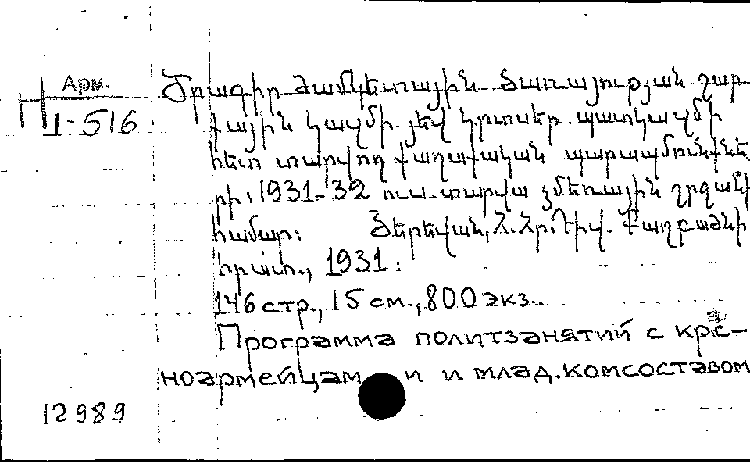 Арм.
II-516
Ծրագիր ժամկետային ծառայության շար-
քային կազմի յեվ կրտսեր պետկազմի
հետ տարվող քաղաքական պարապմունքնե-
րի: 1931-32 ուս. տարվա ձմեռային շրջանի
համար: Յերեվան, Հ.Խ.Հ. Դիվ. Քաղբաժնի
հրատ., 1931:
146 стр., 15 см., 800 экз.
Программа политзанятий с крас-
ноармейцами и млад. комсоставом
12989